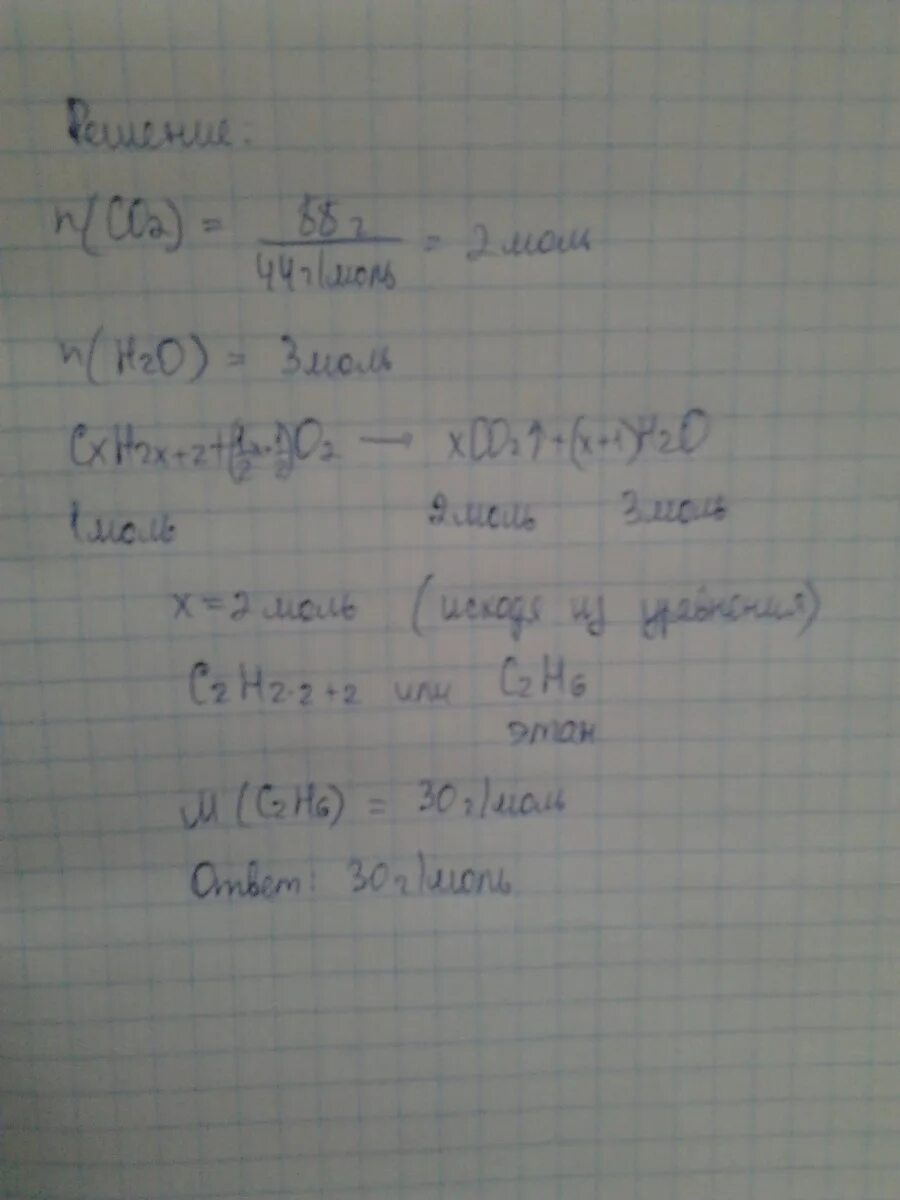 Решение:
n(CO₂) = 88 г / 44 г/моль = 2 моль
n(H₂O) = 3 моль
CxH2x+2 + O₂ → xCO₂↑ + (x+1)H₂O
1 моль 2 моль 3 моль
x = 2 моль (исходя из уравнения)
C₂H2·2+2 или C₂H₆
этан
M(C₂H₆) = 30 г/моль
Ответ: 30 г/моль